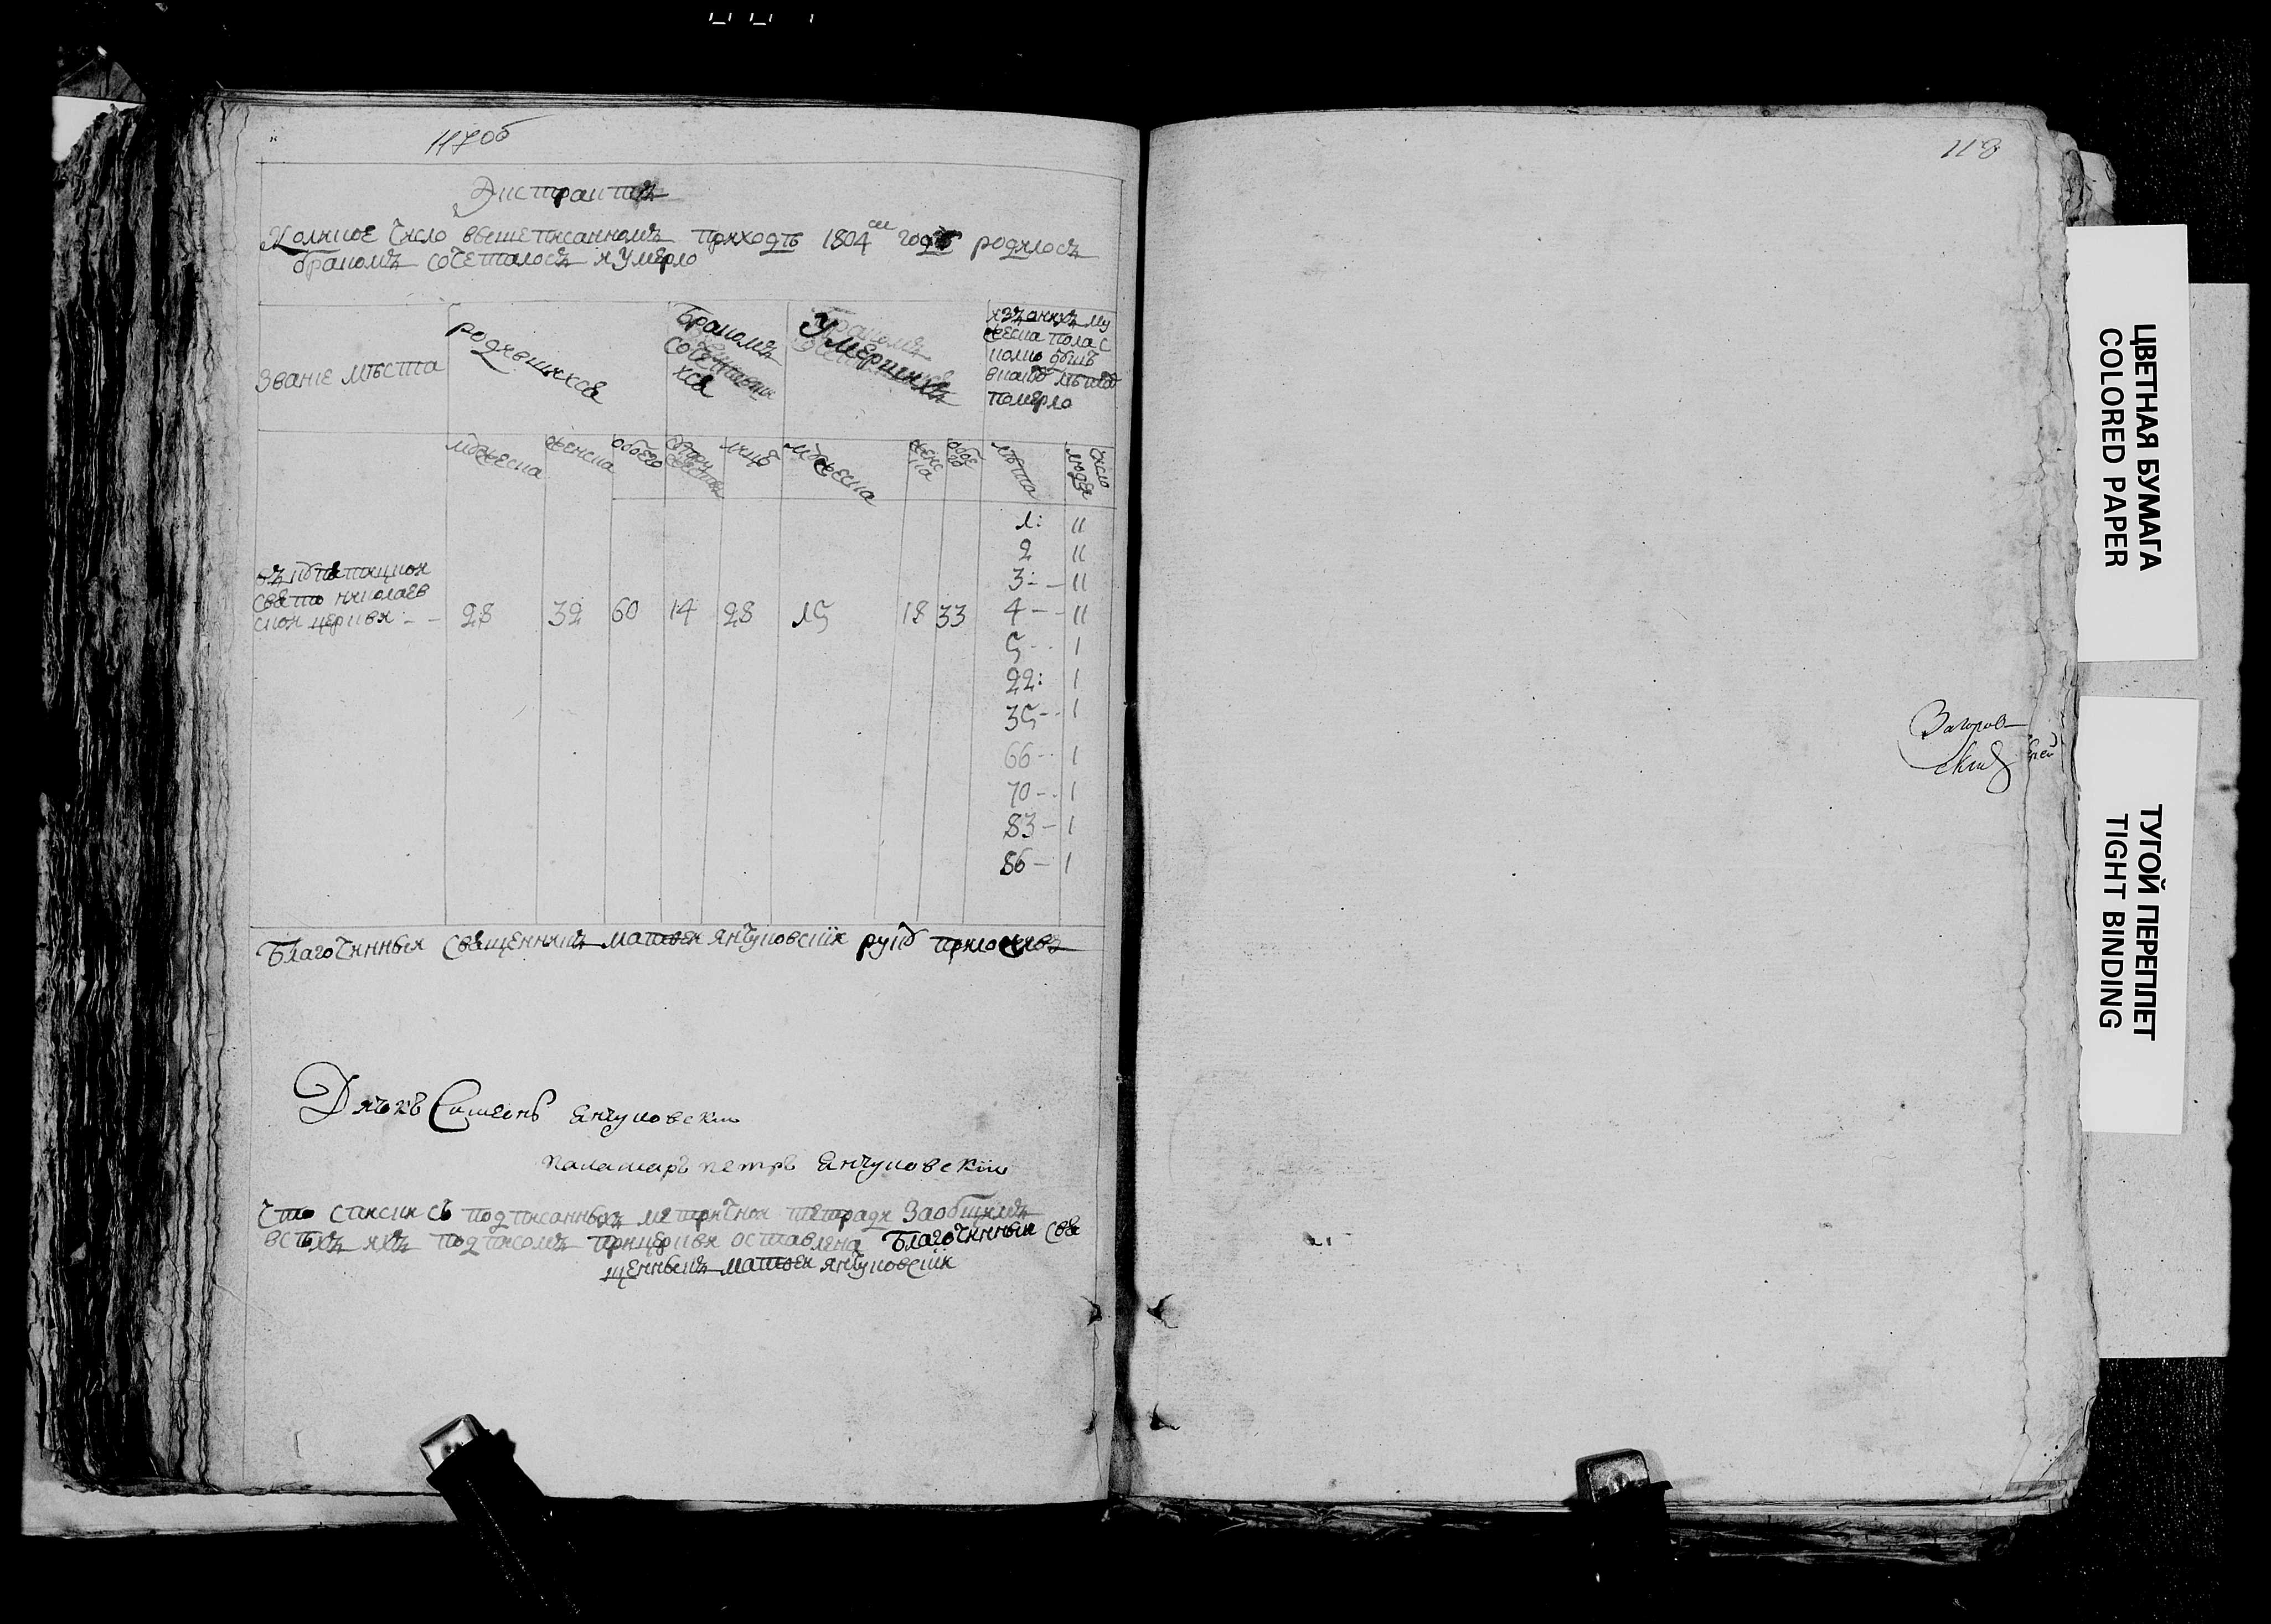 117об
Экстрактъ
Коликое число вышеписанномъ приходѣ 1804м годѣ родилось
бракомъ сочеталось и умерло
Званіе мѣста
родившихся
Бракомъ
сочетавши
хся
Умершихъ
изъ оныхъ му
жеска пола с
полно
помѣрло
мужеска женска обоего лицъ мужеска женс
ка обое лѣта число
людей
1: "
2 "
3: - "
въ
свято николаев
ской церкви - - 28 32 60 14 28 15 18 33 4 - - "
5 - - 1
22: 1
35 - - 1
66 - - 1
70 - - 1
83 - 1
86 - 1
Благочинный священникъ матѳей янчуковскій руку приложивъ
Дячокъ Симеонъ Янчуковскій
паламаръ петръ Янчуковскій
что списки съ подписанныхъ метричной тетради заобщимъ
всѣхъ ихъ подписомъ прицеркви оставлена Благочинный свя
щенникъ матѳей янчуковскій
118
Загоров-
скій Ерей
ЦВЕТНАЯ БУМАГА
COLORED PAPER
ТУГОЙ ПЕРЕПЛЕТ
TIGHT BINDING